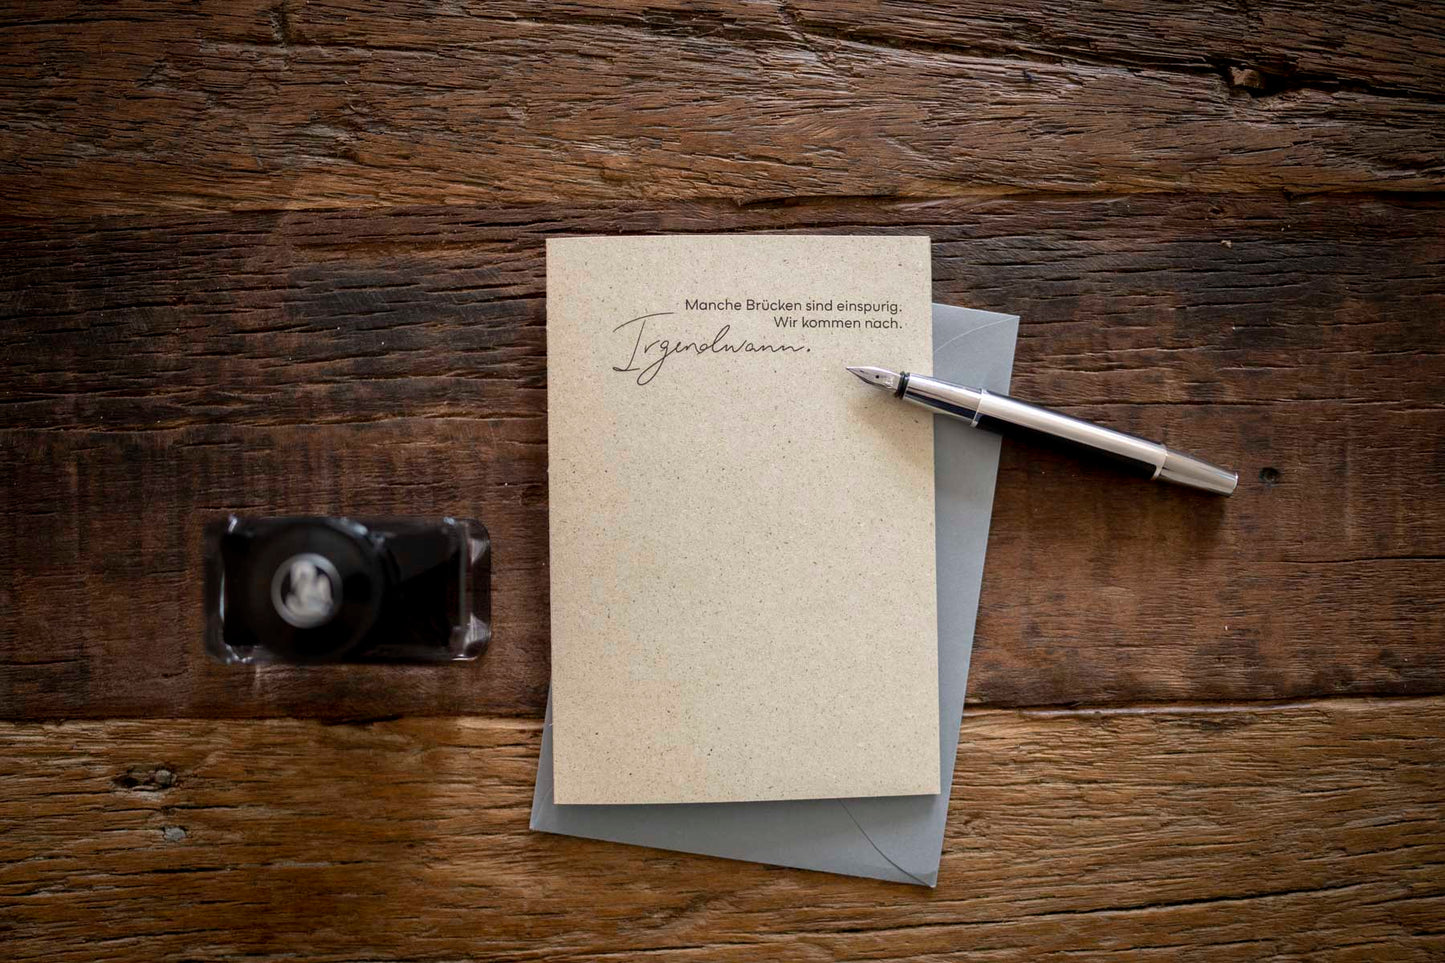 Manche Brücken sind einspurig.
Wir kommen nach.
Irgendwann.